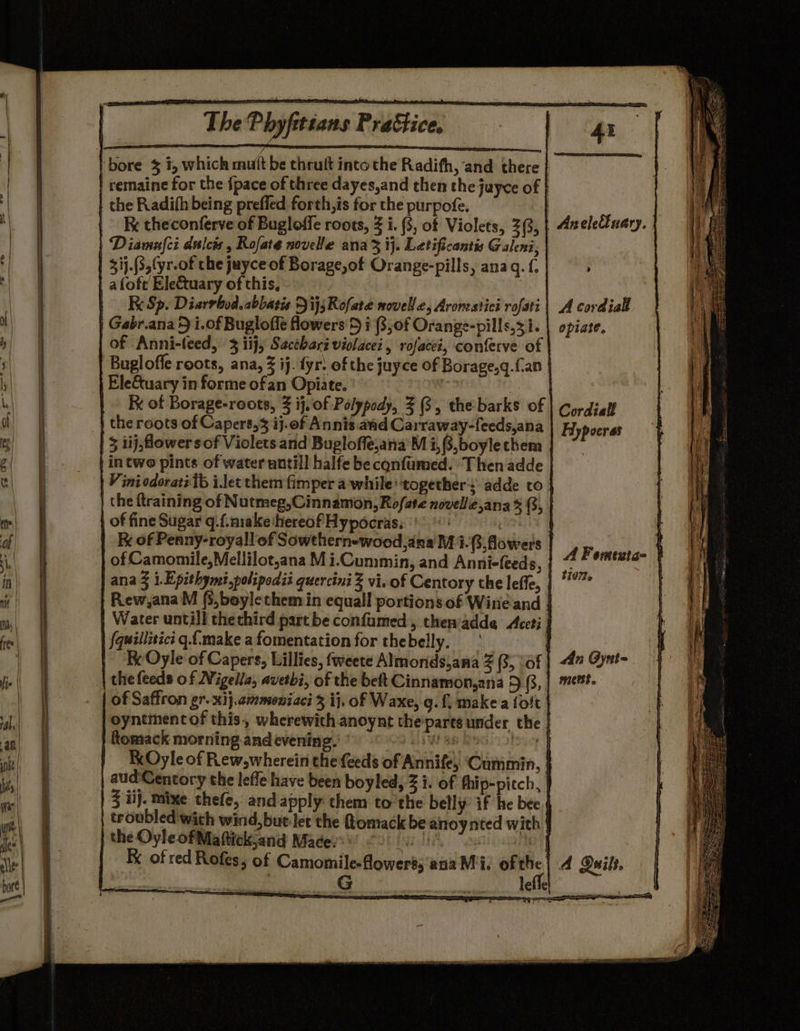 The Phyſitians Practice. 41
bore ʒ i, which muſt be thruſt into the Radiſh, and there
remaine for the ſpace of three dayes, and then the juyce of
the Radiſh being preſſed forth, is for the purpoſe.
℞ the conſerve of Bugloſſe roots, ℥ i. ß, of Violets, ℥ß,
Diamuſci dulcis, Roſatæ novellæ ana ʒ ij. Letificantis Galeni,
ʒij.ß, ſyr. of the juyce of Borage, of Orange-pills, ana q. ſ.
a ſoft Electuary of this.
An electuary.
℞ Sp. Diarrhod. abbatis ℈ij, Roſatæ novellæ, Aromatici roſati
Gabr. ana ℈ i. of Bugloſſe flowers ℈ i ß, of Orange-pills, ʒi.
of Anni-ſeed, ʒ iij, Sacchari violacei, roſacei, conſerve of
Bugloſſe roots, ana, ℥ ij. ſyr. of the juyce of Borage, q.ſ. an
Electuary in forme of an Opiate.
A cordiall
opiate.
℞ of Borage-roots, ℥ ij. of Polypody, ℥ ß, the barks of
the roots of Capers, ʒ ij. of Annis and Carraway-ſeeds, ana
ʒ iij, flowers of Violets and Bugloſſe, ana M i, ß, boyle them
in two pints of water untill halfe be conſumed. Then adde
Vini odorati ℔ i. let them ſimper a while together; adde to
the ſtraining of Nutmeg, Cinnamon, Roſatæ novellæ, ana ʒ ß,
of fine Sugar q.ſ. make hereof Hypocras.
Cordiall
Hypocras
℞ of Penny-royall of Sowthernewood, ana M i. ß, flowers
of Camomile, Mellilot, ana M i. Cummin, and Anni-ſeeds,
ana ℥ i. Epithymi, polipodii quercini ℥ vi. of Centory the leſſe,
Rew, ana M ß, boyle them in equall portions of Wine and
Water untill the third part be conſumed, then adde Aceti
ſquillitici q.ſ. make a fomentation for the belly.
A Fomenta-
tion.
℞ Oyle of Capers, Lillies, ſweete Almonds, ana ℥ ß, of
the ſeeds of Nigella, avethi, of the beſt Cinnamon, ana ℈ ß,
of Saffron gr. xij. ammoniaci ʒ ij. of Waxe, q. ſ, make a ſoft
oyntment of this, wherewith anoynt the parts under the
ſtomack morning and evening.
An Oynt-
ment.
℞ Oyle of Rew, wherein the ſeeds of Anniſe, Cummin,
and Centory the leſſe have been boyled, ℥ i. of ſhip-pitch,
℥ iij. mixe theſe, and apply them to the belly if he bee
troubled with wind, but let the ſtomack be anoynted with
the Oyle of Maſtick, and Mace.
℞ of red Roſes, of Camomile-flowers, ana M i. of the
A Quilt.
G leſſe